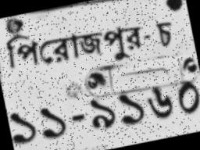 পিরোজপুর- চ
১১-৯১৬০